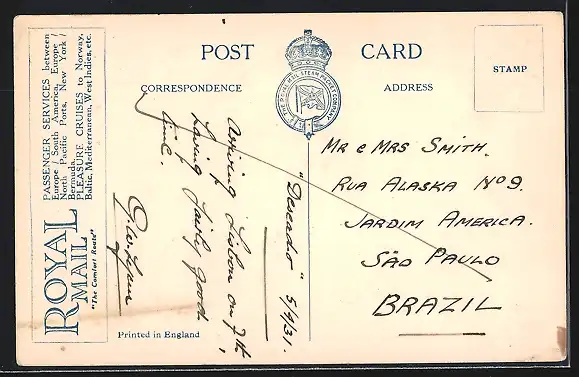 POST CARD
CORRESPONDENCE
ADDRESS
STAMP
THE ROYAL MAIL STEAM PACKET COMPANY
PASSENGER SERVICES between
Europe / South America, Europe /
North Pacific Ports, New York /
Bermuda.
PLEASURE CRUISES to Norway,
Baltic, Mediterranean, West Indies, etc.
ROYAL
MAIL
"The Comfort Route"
"Deseado" 5/4/31.
Arriving Lisbon on 7th,
having fairly good
time.
Mr & Mrs Smith.
Rua Alaska No 9.
Jardim America.
São Paulo
BRAZIL
Printed in England